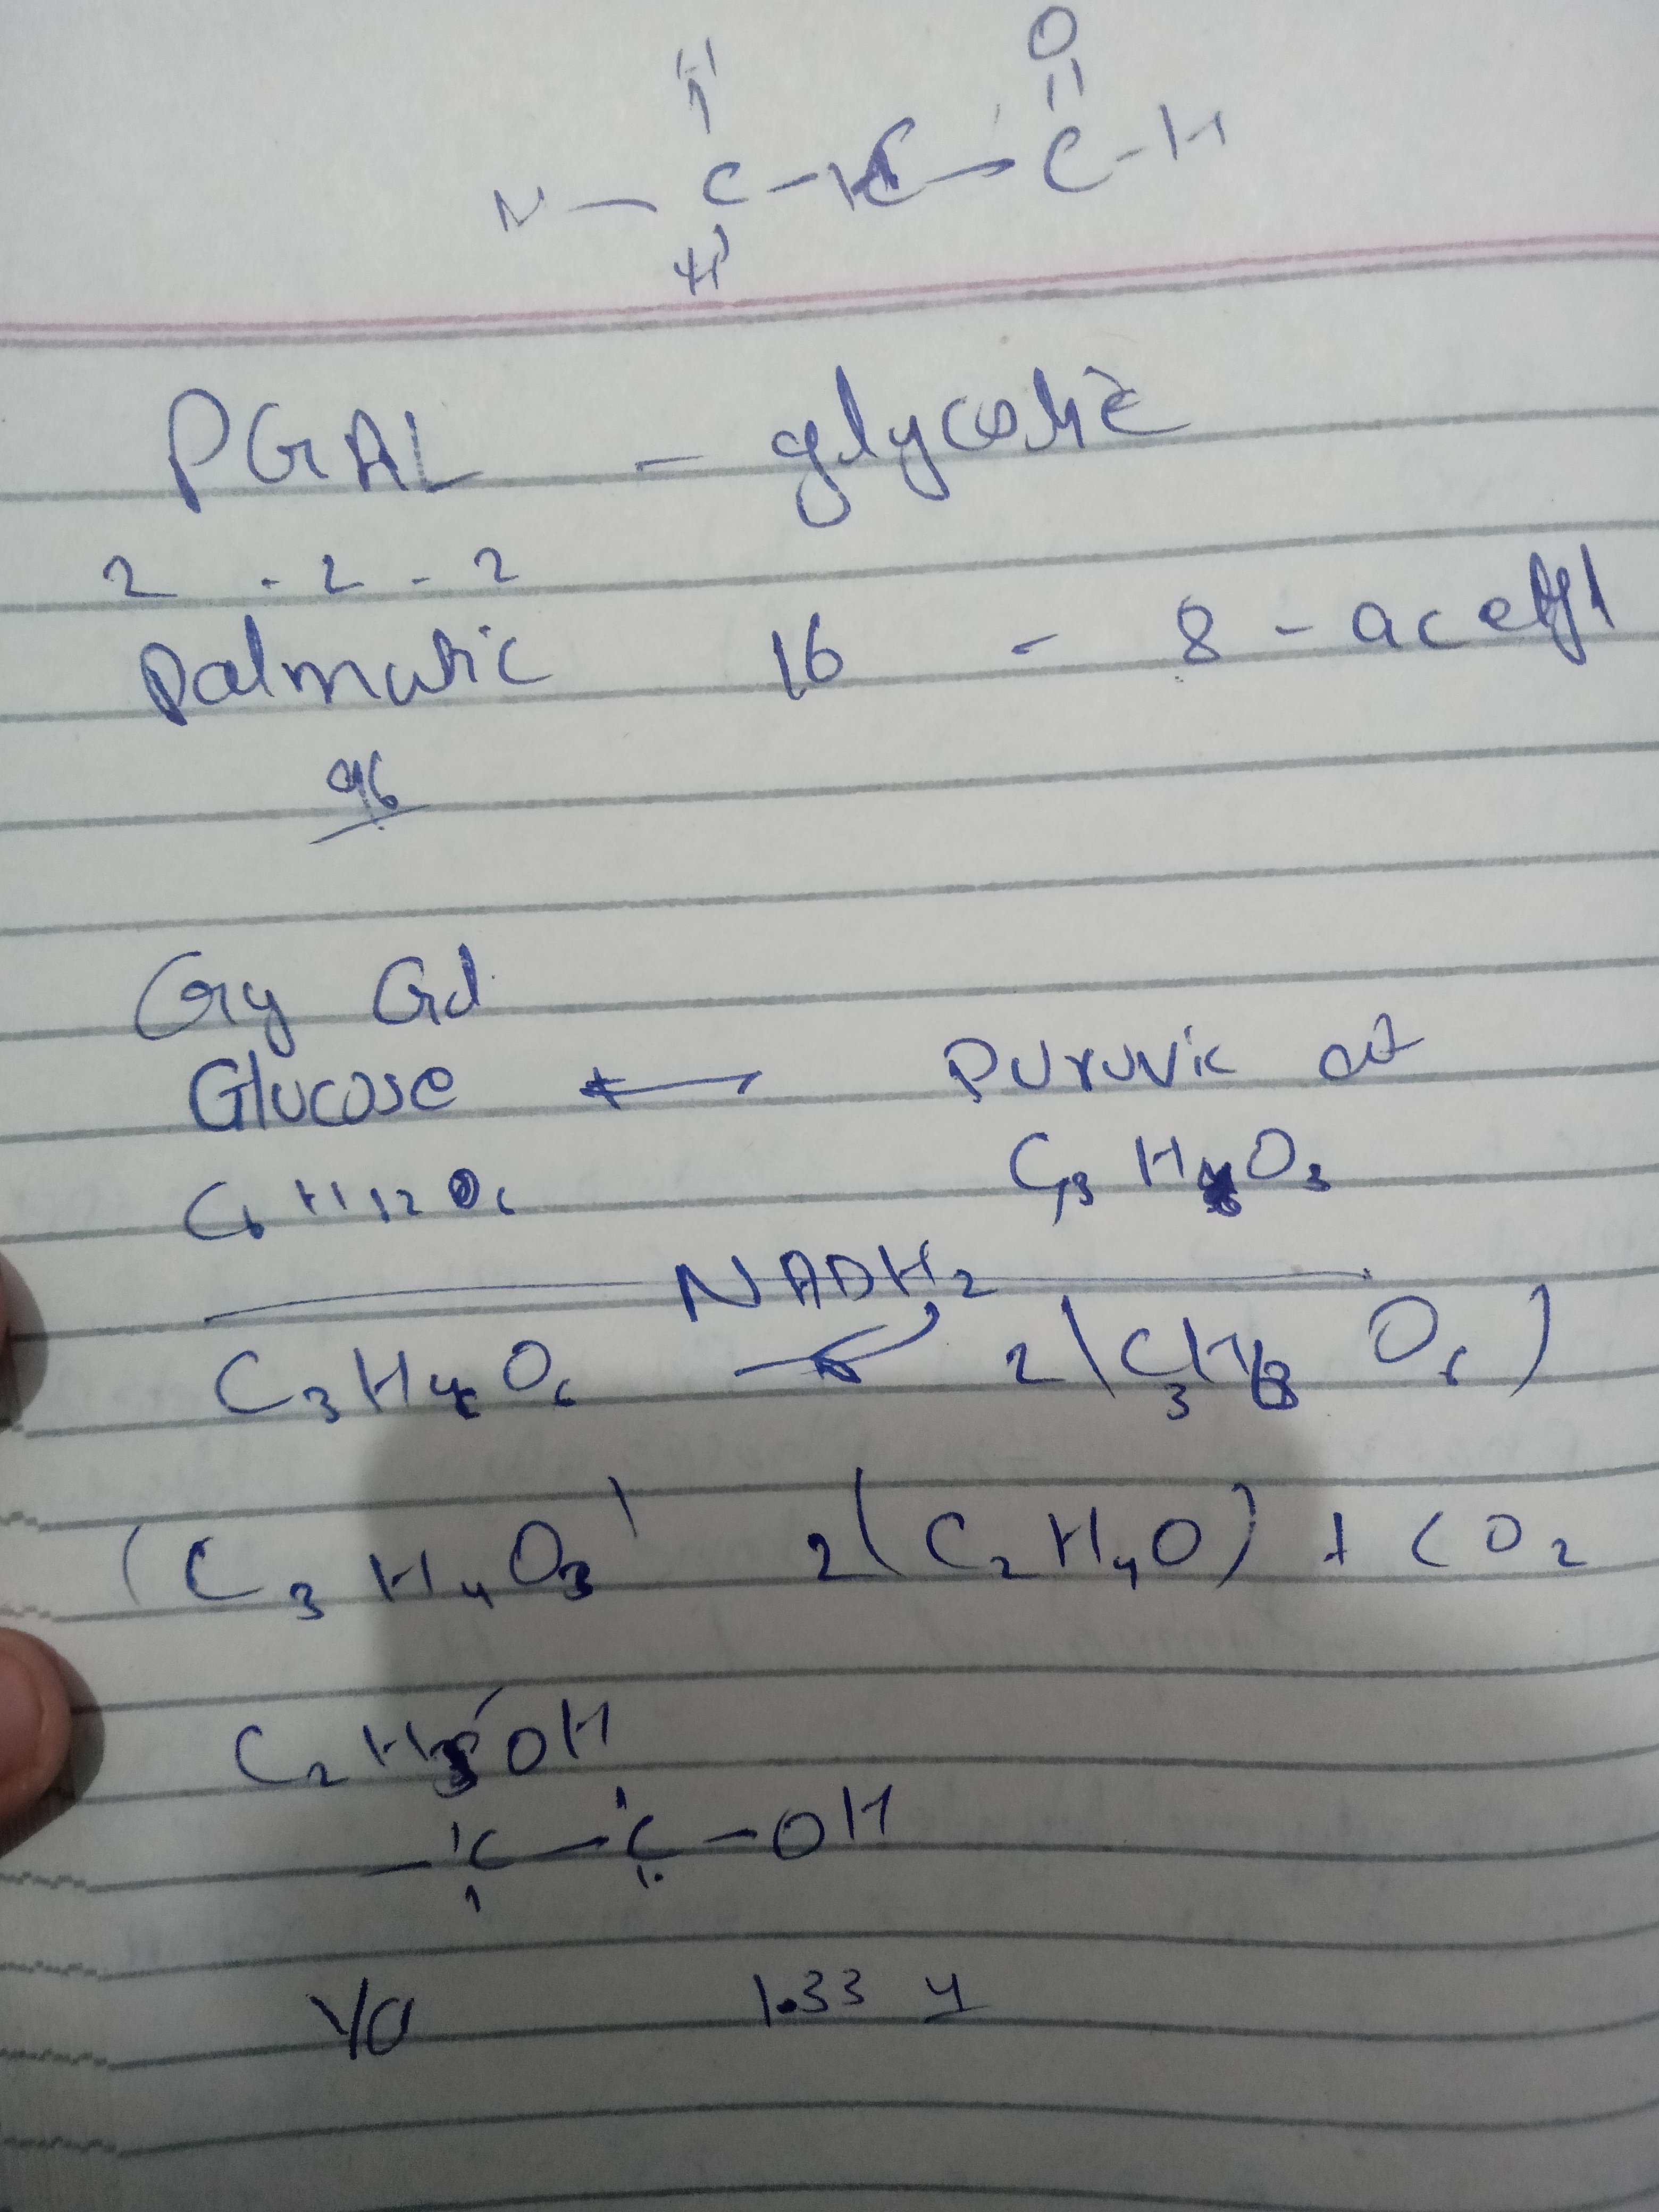 O
H
C - H
C
H
PGAL - glycolic
2 - 2 - 2
Palmatic 16 - 8 - acetyl
96
Gly Gd
Glucose Pyruvic
C6 H12 O6 C3 H4 O3
NADH2
C3 H O6 2(C3 H O6)
(C3 H4 O3) 2(C2 H4 O) + CO2
C2 H5 OH
C - C - OH
1.33 4